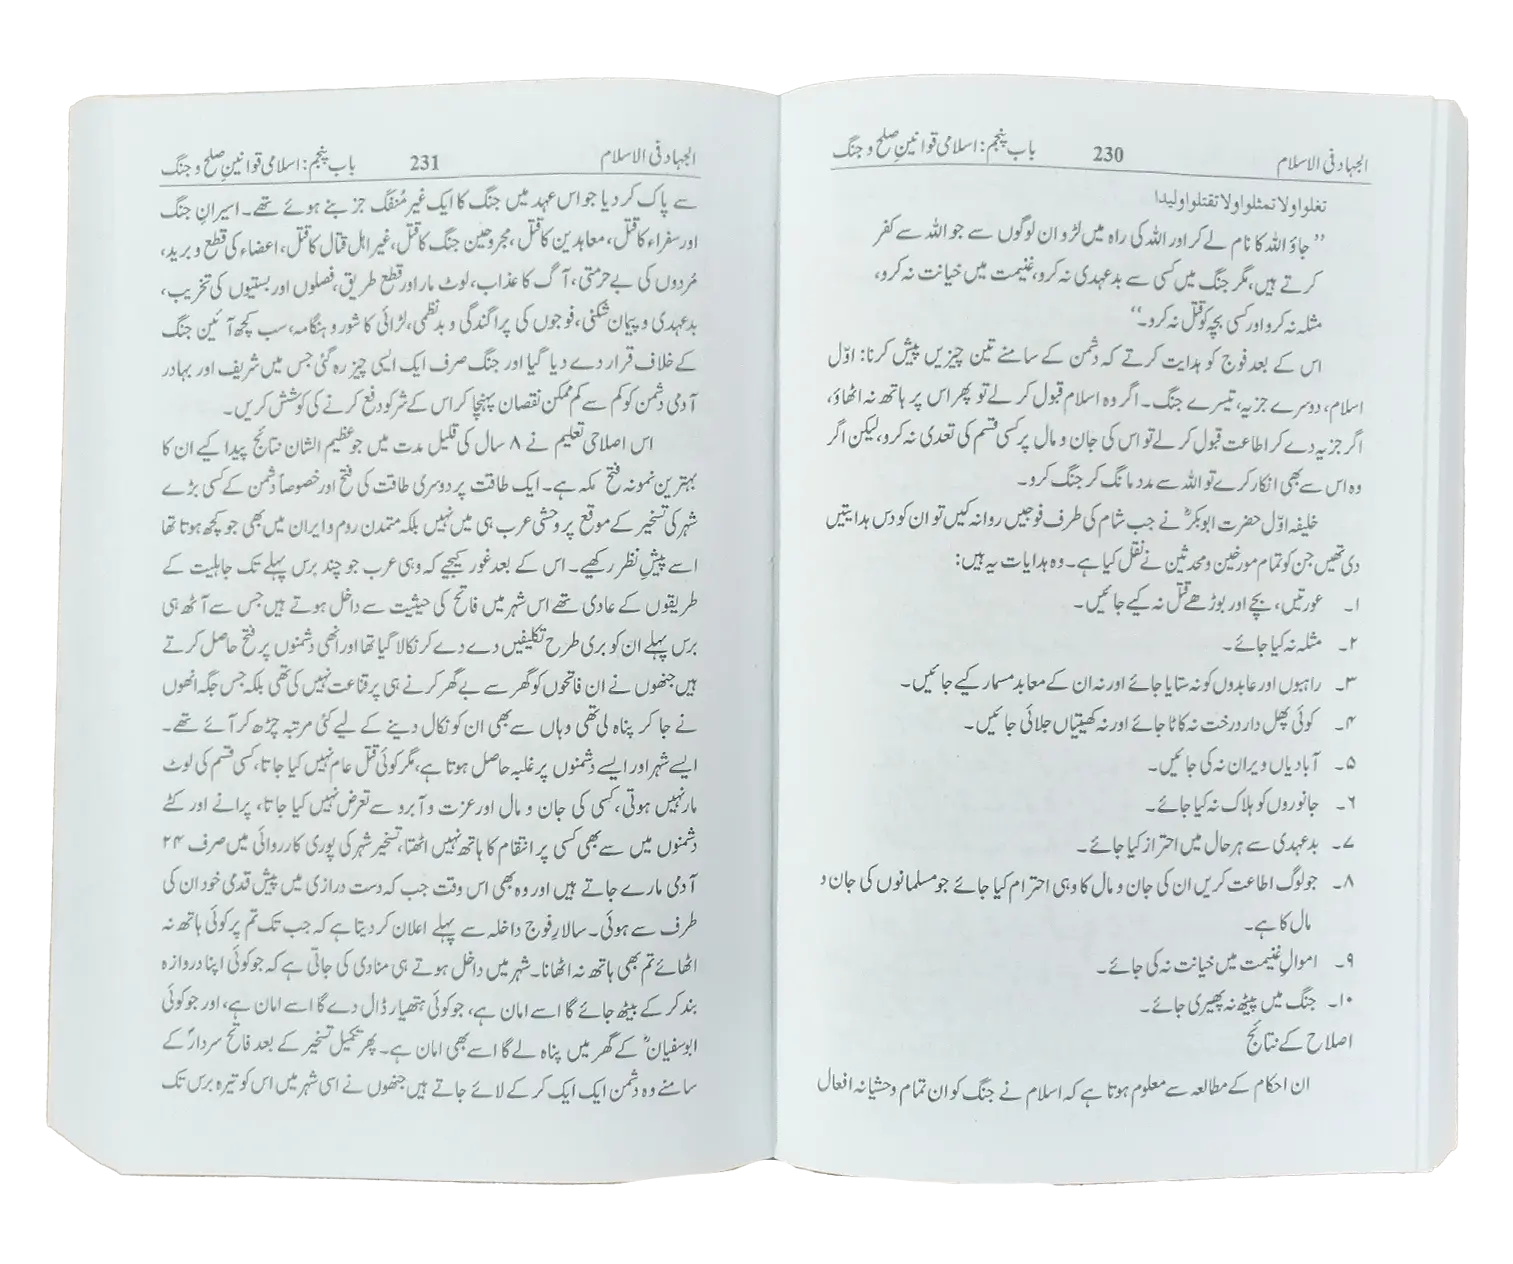 الجہاد فی الاسلام 230 باب پنجم: اسلامی قوانینِ صلح و جنگ
تغلوا ولا تمثلوا ولا تقتلوا ولیدا
”جاؤ اللہ کا نام لے کر اور اللہ کی راہ میں لڑو ان لوگوں سے جو اللہ سے کفر
کرتے ہیں، مگر جنگ میں کسی سے بدعہدی نہ کرو، غنیمت میں خیانت نہ کرو،
مثلہ نہ کرو اور کسی بچہ کو قتل نہ کرو۔“
اس کے بعد فوج کو ہدایت کرتے کہ دشمن کے سامنے تین چیزیں پیش کرنا: اوّل
اسلام، دوسرے جزیہ، تیسرے جنگ۔ اگر وہ اسلام قبول کر لے تو پھر اس پر ہاتھ نہ اٹھاؤ،
اگر جزیہ دے کر اطاعت قبول کر لے تو اس کی جان و مال پر کسی قسم کی تعدی نہ کرو، لیکن اگر
وہ اس سے بھی انکار کرے تو اللہ سے مدد مانگ کر جنگ کرو۔
خلیفہ اوّل حضرت ابوبکرؓ نے جب شام کی طرف فوجیں روانہ کیں تو ان کو دس ہدایتیں
دی تھیں جن کو تمام مورخین و محدثین نے نقل کیا ہے۔ وہ ہدایات یہ ہیں:
۱۔ عورتیں، بچے اور بوڑھے قتل نہ کیے جائیں۔
۲۔ مثلہ نہ کیا جائے۔
۳۔ راہبوں اور عابدوں کو نہ ستایا جائے اور نہ ان کے معابد مسمار کیے جائیں۔
۴۔ کوئی پھل دار درخت نہ کاٹا جائے اور نہ کھیتیاں جلائی جائیں۔
۵۔ آبادیاں ویران نہ کی جائیں۔
۶۔ جانوروں کو ہلاک نہ کیا جائے۔
۷۔ بدعہدی سے ہر حال میں احتراز کیا جائے۔
۸۔ جو لوگ اطاعت کریں ان کی جان و مال کا وہی احترام کیا جائے جو مسلمانوں کی جان و
مال کا ہے۔
۹۔ اموالِ غنیمت میں خیانت نہ کی جائے۔
۱۰۔ جنگ میں پیٹھ نہ پھیری جائے۔
اصلاح کے نتائج
ان احکام کے مطالعہ سے معلوم ہوتا ہے کہ اسلام نے جنگ کو ان تمام وحشیانہ افعال
الجہاد فی الاسلام 231 باب پنجم: اسلامی قوانینِ صلح و جنگ
سے پاک کر دیا جو اس عہد میں جنگ کا ایک غیر مُنفک جز بنے ہوئے تھے۔ اسیرانِ جنگ
اور سفراء کا قتل، معاہدین کا قتل، مجروحین جنگ کا قتل، غیر اہل قتال کا قتل، اعضاء کی قطع و برید،
مُردوں کی بے حرمتی، آگ کا عذاب، لوٹ مار اور قطع طریق، فصلوں اور بستیوں کی تخریب،
بدعہدی و پیمان شکنی، فوجوں کی پراگندگی و بدنظمی، لڑائی کا شور و ہنگامہ، سب کچھ آئین جنگ
کے خلاف قرار دے دیا گیا اور جنگ صرف ایک ایسی چیز رہ گئی جس میں شریف اور بہادر
آدمی دشمن کو کم سے کم ممکن نقصان پہنچا کر اس کے شر کو دفع کرنے کی کوشش کریں۔
اس اصلاحی تعلیم نے ۸ سال کی قلیل مدت میں جو عظیم الشان نتائج پیدا کیے ان کا
بہترین نمونہ فتح مکہ ہے۔ ایک طاقت پر دوسری طاقت کی فتح اور خصوصاً دشمن کے کسی بڑے
شہر کی تسخیر کے موقع پر وحشی عرب ہی میں نہیں بلکہ متمدن روم و ایران میں بھی جو کچھ ہوتا تھا
اسے پیشِ نظر رکھیے۔ اس کے بعد غور کیجیے کہ وہی عرب جو چند برس پہلے تک جاہلیت کے
طریقوں کے عادی تھے اس شہر میں فاتح کی حیثیت سے داخل ہوتے ہیں جس سے آٹھ ہی
برس پہلے ان کو بری طرح تکلیفیں دے دے کر نکالا گیا تھا اور انھی دشمنوں پر فتح حاصل کرتے
ہیں جنھوں نے ان فاتحوں کو گھر سے بے گھر کرنے ہی پر قناعت نہیں کی تھی بلکہ جس جگہ انھوں
نے جا کر پناہ لی تھی وہاں سے بھی ان کو نکال دینے کے لیے کئی مرتبہ چڑھ کر آئے تھے۔
ایسے شہر اور ایسے دشمنوں پر غلبہ حاصل ہوتا ہے، مگر کوئی قتل عام نہیں کیا جاتا، کسی قسم کی لوٹ
مار نہیں ہوتی، کسی کی جان و مال اور عزت و آبرو سے تعرض نہیں کیا جاتا، پرانے اور کٹے
دشمنوں میں سے بھی کسی پر انتقام کا ہاتھ نہیں اٹھتا، تسخیر شہر کی پوری کارروائی میں صرف ۲۴
آدمی مارے جاتے ہیں اور وہ بھی اس وقت جب کہ دست درازی میں پیش قدمی خود ان کی
طرف سے ہوئی۔ سالارِ فوج داخلہ سے پہلے اعلان کر دیتا ہے کہ جب تک تم پر کوئی ہاتھ نہ
اٹھائے تم بھی ہاتھ نہ اٹھانا۔ شہر میں داخل ہوتے ہی منادی کی جاتی ہے کہ جو کوئی اپنا دروازہ
بند کر کے بیٹھ جائے گا اسے امان ہے، جو کوئی ہتھیار ڈال دے گا اسے امان ہے، اور جو کوئی
ابوسفیانؓ کے گھر میں پناہ لے گا اسے بھی امان ہے۔ پھر تکمیل تسخیر کے بعد فاتح سردارؐ کے
سامنے وہ دشمن ایک ایک کر کے لائے جاتے ہیں جنھوں نے اسی شہر میں اس کو تیرہ برس تک